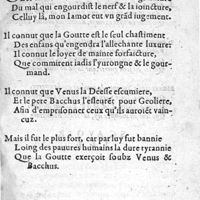 Du mal qui engourdist le nerf & la ioincture,
Celluy là, mon Iamot eut vn grād iugement.
Il connut que la Goutte est le seul chastiment
Des enfans qu'engendra l'allechante luxure:
Il connut le loyer de mainte forfaicture,
Que commirent iadis l'yurongne & le gour-
mand.
Il connut que Venus la Déesse escumiere,
Et le pere Bacchus l'esleurēt pour Geoliere,
Afin d'emprisonner ceux qu'ils auroiēt vain-
cuz.
Mais il fut le plus fort, car par luy fut bannie
Loing des pauures humains la dure tyrannie
Que la Goutte exerçoit soubz Venus &
Bacchus.